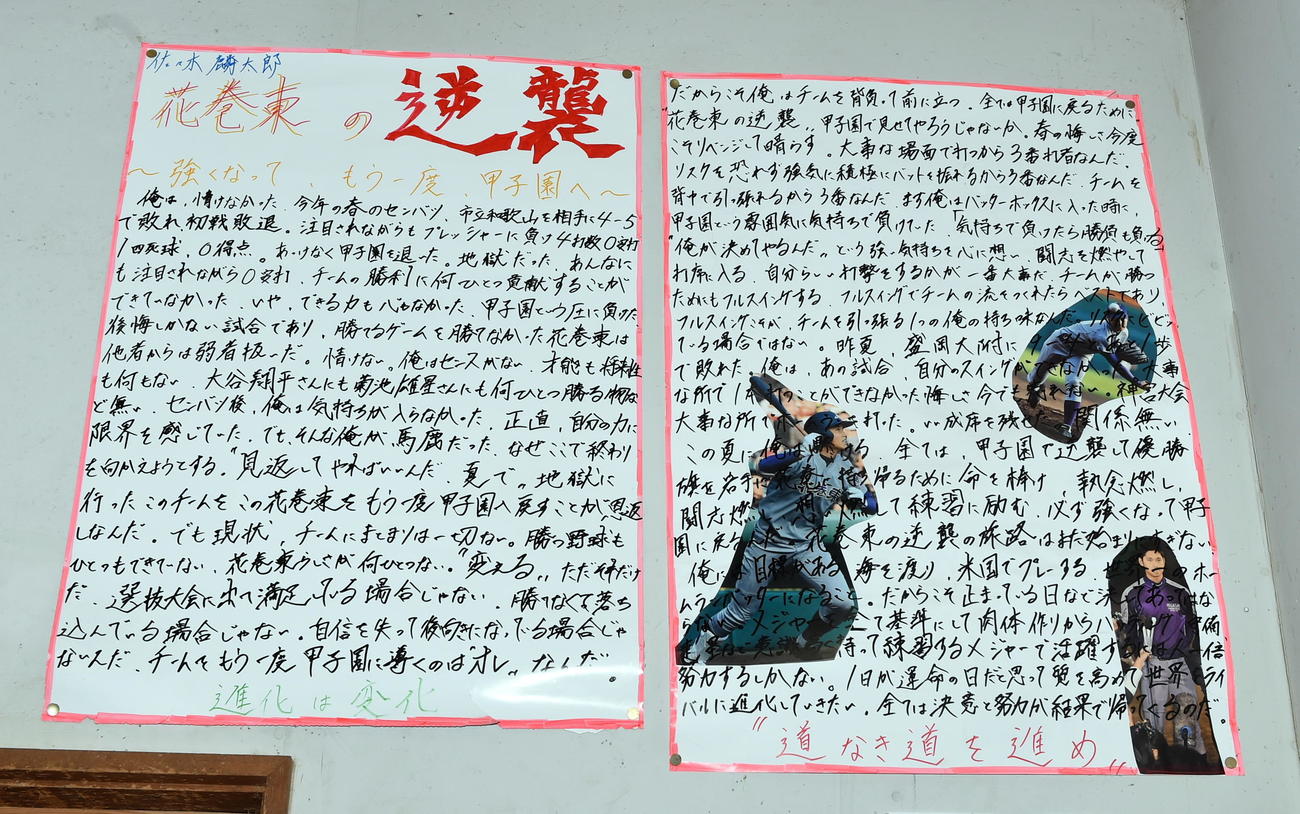 佐々木麟太郎
花巻東の逆襲
～強くなって、もう一度、甲子園へ～
俺は、情けなかった。今年の春のセンバツ、市立和歌山を相手に4-5
で敗れ初戦敗退。注目されながらもプレッシャーに負け4打数0安打
1四死球、0得点。あっけなく甲子園を退った。地獄だった。あんなに
も注目されながら0安打、チームの勝利に何ひとつ貢献することが
できていなかった。いや、できる力も心もなかった。甲子園という圧に負けた。
後悔しかない試合であり、勝てるゲームを勝てなかった花巻東は
他者からは弱者扱いだ。情けない。俺はセンスがない、才能も将来性
も何もない、大谷翔平さんにも菊池雄星さんにも何ひとつ勝る物な
ど無い。センバツ後、俺は気持ちが入らなかった。正直、自分の力に
限界を感じていた。でも、そんな俺が、馬鹿だった。なぜここで終わり
を向かえようとする。"見返してやればいいんだ、夏で〟地獄に
行ったこのチームをこの花巻東をもう一度甲子園へ戻すことが見返
しなんだ。でも現状、チームにまとまりは一切ない。勝つ野球も
ひとつもできてない、花巻東らしさが何ひとつない。"変える〟ただそれだけ
だ、選抜大会に出て満足している場合じゃない。勝てなくて落ち
込んでいる場合じゃない。自信を失って後向きになっている場合じゃ
ないんだ、チームをもう一度甲子園に導くのは"オレ〟なんだ。
進化は変化
だからこそ俺はチームを背負って前に立つ。全ては甲子園に戻るために
"花巻東の逆襲〟甲子園で見せてやろうじゃないか。春の悔しさ今度
こそリベンジして晴らす。大事な場面で打つから3番打者なんだ、
リスクを恐れず強気に積極にバットを振れるから3番なんだ、チームを
背中で引っ張れるから3番なんだ。まず俺はバッターボックスに入った時に、
甲子園という雰囲気に気持ちで負けてた「気持ちで負けたら勝負も負ける」
"俺が決めてやるんだ〟という強い気持ちを心に想い、闘志を燃やして
打席に入る、自分らしい打撃をするかが一番大事だ、チームが勝つ
ためにもフルスイングする、フルスイングでチームの流れをつくれたらベストであり、
フルスイングこそが、チームを引っ張る1つの俺の持ち味なんだ、リスクにビビっ
ている場合ではない。昨夏、盛岡大附に 1歩
で敗れた。俺は、あの試合、自分のスイングができなかった、大事
な所で1本 ことができなかった悔しさ今でも 神宮大会
大事な所でホーム された。いい成績を残せ 関係無い
この夏に俺は 全ては、甲子園で逆襲して優勝
旗を岩手に 持ち帰るために命を棒け、執念燃し、
闘志燃 して練習に励む、必ず強くなって甲子
園に戻る 花巻東の逆襲の旅路はまだ始まりにすぎない
俺には目標がある、海を渡り、米国でプレーする、世界一のホー
ムランバッターになること。だからこそ止まっている日など決してあってはな
らない。メジャーを 基準にして肉体作りから
を 持って練習するメジャーで活躍するには人一倍
努力するしかない。1日が運命の日だと思って質を高めて世界をライ
バルに進化していきたい。全ては決意と努力が結果で帰ってくるのだ。
"道なき道を進め〟